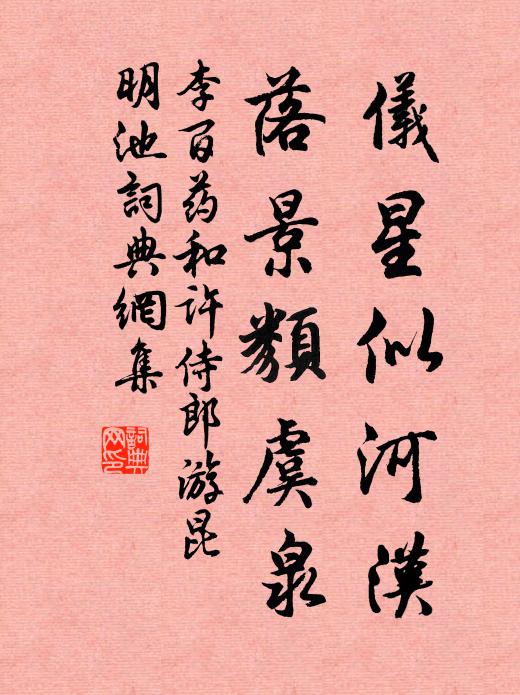 儀星似河漢
落景類虞泉
李百药和许侍郎游昆
明池詞典網集
詞典
网印